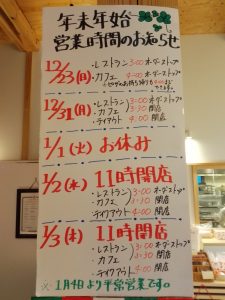 年末年始
営業時間のお知らせ
12/23(日)
・レストラン 3:00 オーダーストップ
・カフェ 4:00 オーダーストップ
12/31(月)
・レストラン 3:00 オーダーストップ
・カフェ 3:30 閉店
・テイクアウト 4:00 閉店
1/1(火) お休み
1/2(水) 11時開店
・レストラン 3:00 オーダーストップ
・カフェ 3:30 閉店
・テイクアウト 4:00 閉店
1/3(木) 11時開店
・レストラン 3:00 オーダーストップ
・カフェ 3:30 閉店
・テイクアウト 4:00 閉店
※1月4日より平常営業です。